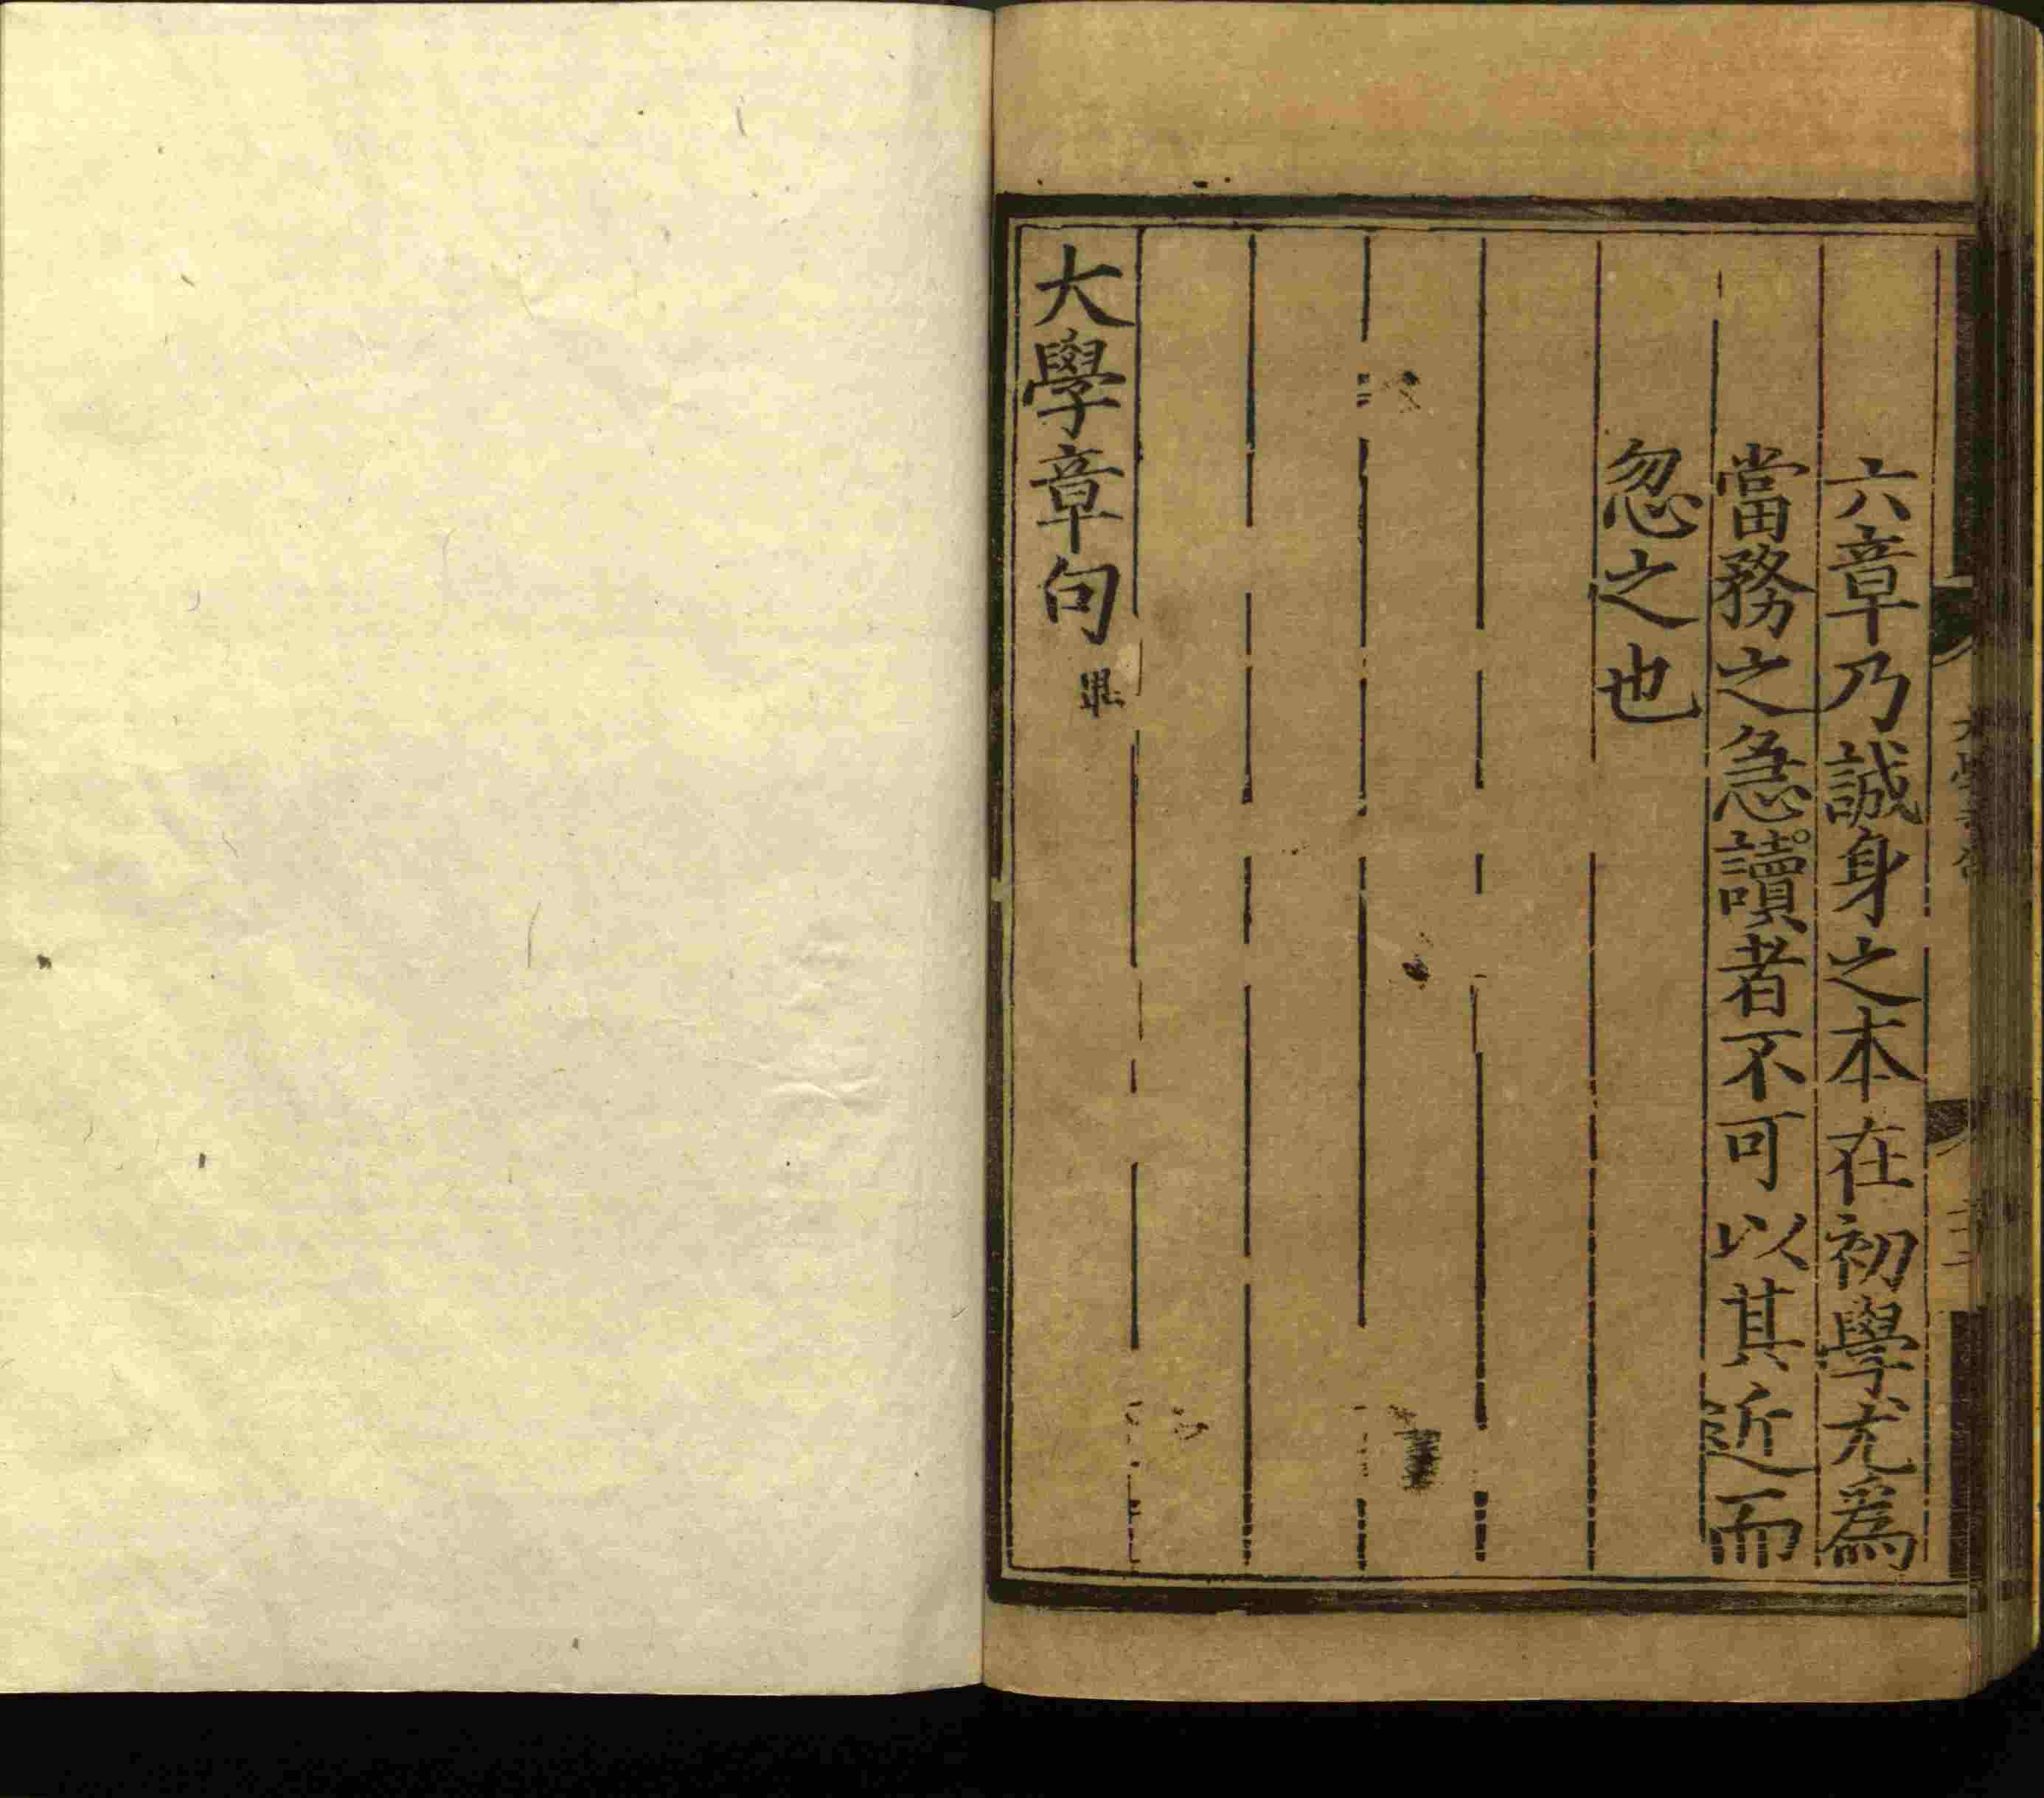 六章乃誠身之本在初學尤爲
當務之急讀者不可以其近而
忽之也
大學章句